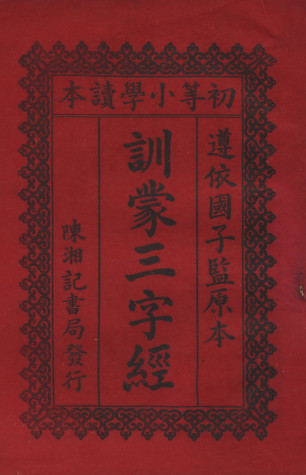 初等小學讀本
遵依國子監原本
訓蒙三字經
陳湘記書局發行